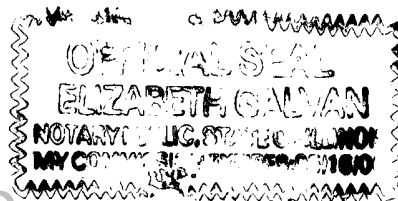 OFFICIAL SEAL
ELIZABETH GALVAN
NOTARY PUBLIC, STATE OF ILLINOI
MY COMMISSION EXPIRES